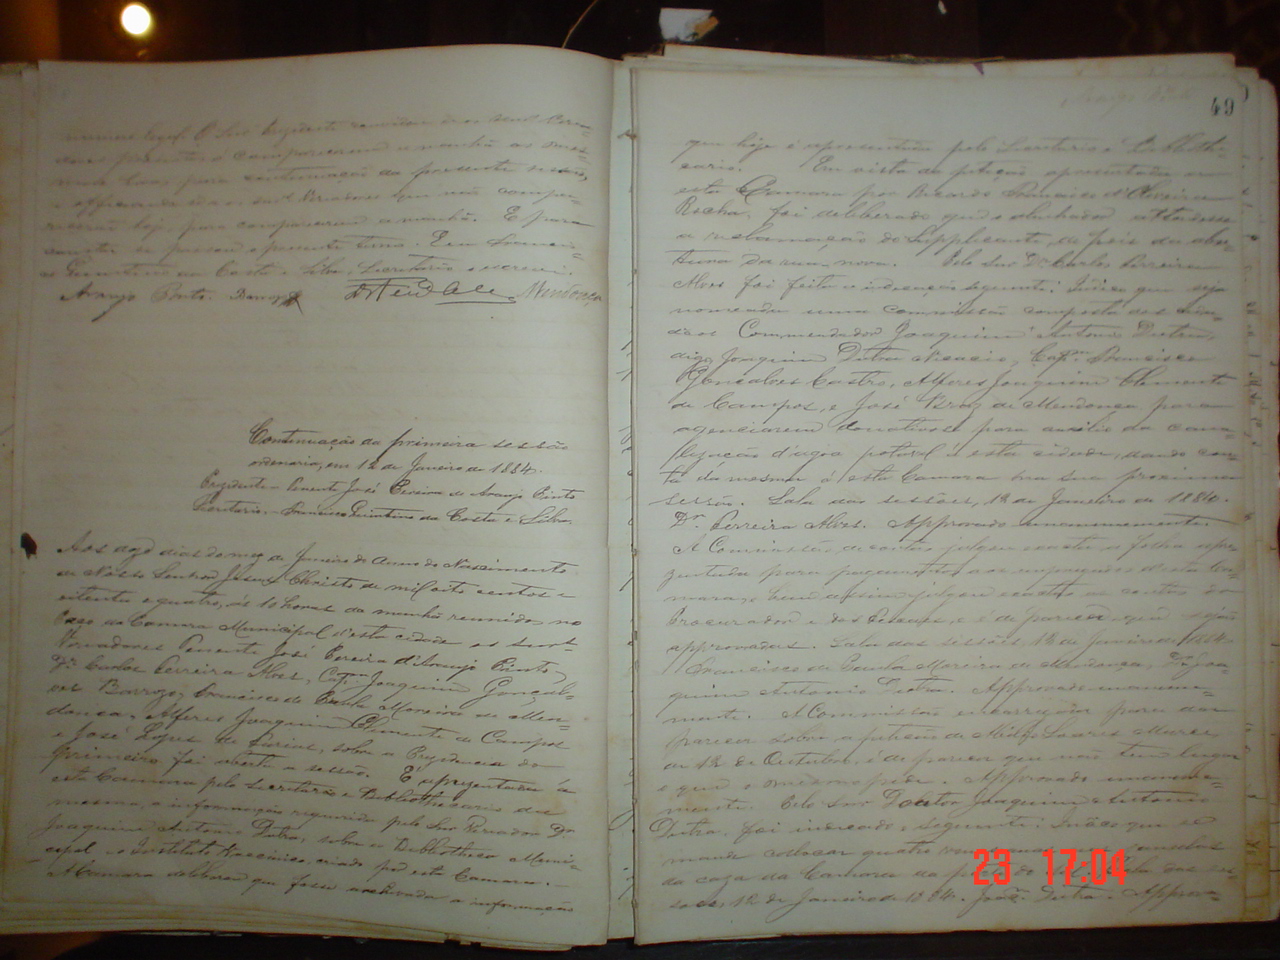 numero legal. O Snr Presidente convidou aos Senrs Verea=
dores presentes a comparecerem amanhã as mes=
mas horas para continuação da presente sessão,
officiando-se aos senrs Vereadores que não compa=
recerão hoje, para comparecerem amanhã. E para
constar se passou o presente termo. Eu Francis=
co Quintino da Costa e Silva, Secretario o escrevi.
Araujo Pinto. Barroso Mendonça
Continuação da primeira sessão
ordenaria, em 12 de Janeiro de 1884.
Prezidente = Tenente José Pereira de Araujo Pinto
Secretario = Francisco Quintino da Costa e Silva.
Aos dias do mez de Janeiro do Anno do Nascimento
de Nosso Senhor Jesus Christo de mil oito centos e
oitenta e quatro, ás 10 horas da manhã reunidos no
Paço da Camara Municipal d'esta cidade os senrs
Vereadores Tenente José Pereira d'Araujo Pinto,
Dr. Carlos Ferreira Alves, Capm. Joaquim Gonçal=
ves Barrozo, Francisco de Paula Moreira de Men=
donça, Alferes Joaquim Clemente de Campos
e José Lopes de Farias, sobre a Prezidencia do
primeiro foi aberta a sessão. É aprezentada á
esta Camara pelo Secretario e Bibliothecario da
mesma, a informação requerida pelo Snr Vereador Dr
Joaquim Antonio Dutra, sobre a Bibliotheca Muni=
cipal e o Instituto, creado por esta Camara. =
A Camara deliberou que fosse archivada a informação
49
que hoje é apresentada pelo Secretario e Bibliothe=
cario. Em vista da petição apresentada a
esta Camara por Francisco d'Oliveira
Rocha, foi deliberado que o alinhador attendesse
a reclamação do Supplicante, depois da aber=
tura da rua nova. Pelo Snr Dr Carlos Ferreira
Alves foi feita a indicação seguinte: Indico que seja
nomeada uma commissão composta dos cida=
dãos Commendador Joaquim Antonio Dutra,
digo, Joaquim Dutra Nicacio, Capm. Francisco
Gonsalves Castro, Alferes Joaquim Clemente
de Campos, e José Braz de Mendonça para
agenciarem donativos para auxilio da cana=
lização d'agoa potavel á esta cidade, dando con=
ta da mesma á esta Camara na sua proxima
sessão. Sala das sessões, 12 de Janeiro de 1884.
Dr Ferreira Alves. Approvado unanimemente.
A Commissão de contas julgou exacta a folha apre=
zentada para pagamento aos empregados desta Ca=
mara, e bem assim julgou exactas as contas do
Procurador e dos Fiscaes, e é de parecer que sejão
approvadas. Sala das sessões 12 de Janeiro de 1884.
Francisco de Paula Moreira de Mendonça, Dr. Joa=
quim Antonio Dutra. Approvado unanime=
mente. A Commissão encarregada para dar
parecer sobre a petição de Soares
de 12 de Outubro, é de parecer que não tem lugar
o que o mesmo pede. Approvado unanime=
mente. Pelo Snr Doutor Joaquim Antonio
Dutra, foi indicado o seguinte: Indico que se
mande collocar quatro
da caza da Camara Sala das ses=
soes, 12 de Janeiro de 1884. Joaqm. Dutra. Approva=
23 17:04